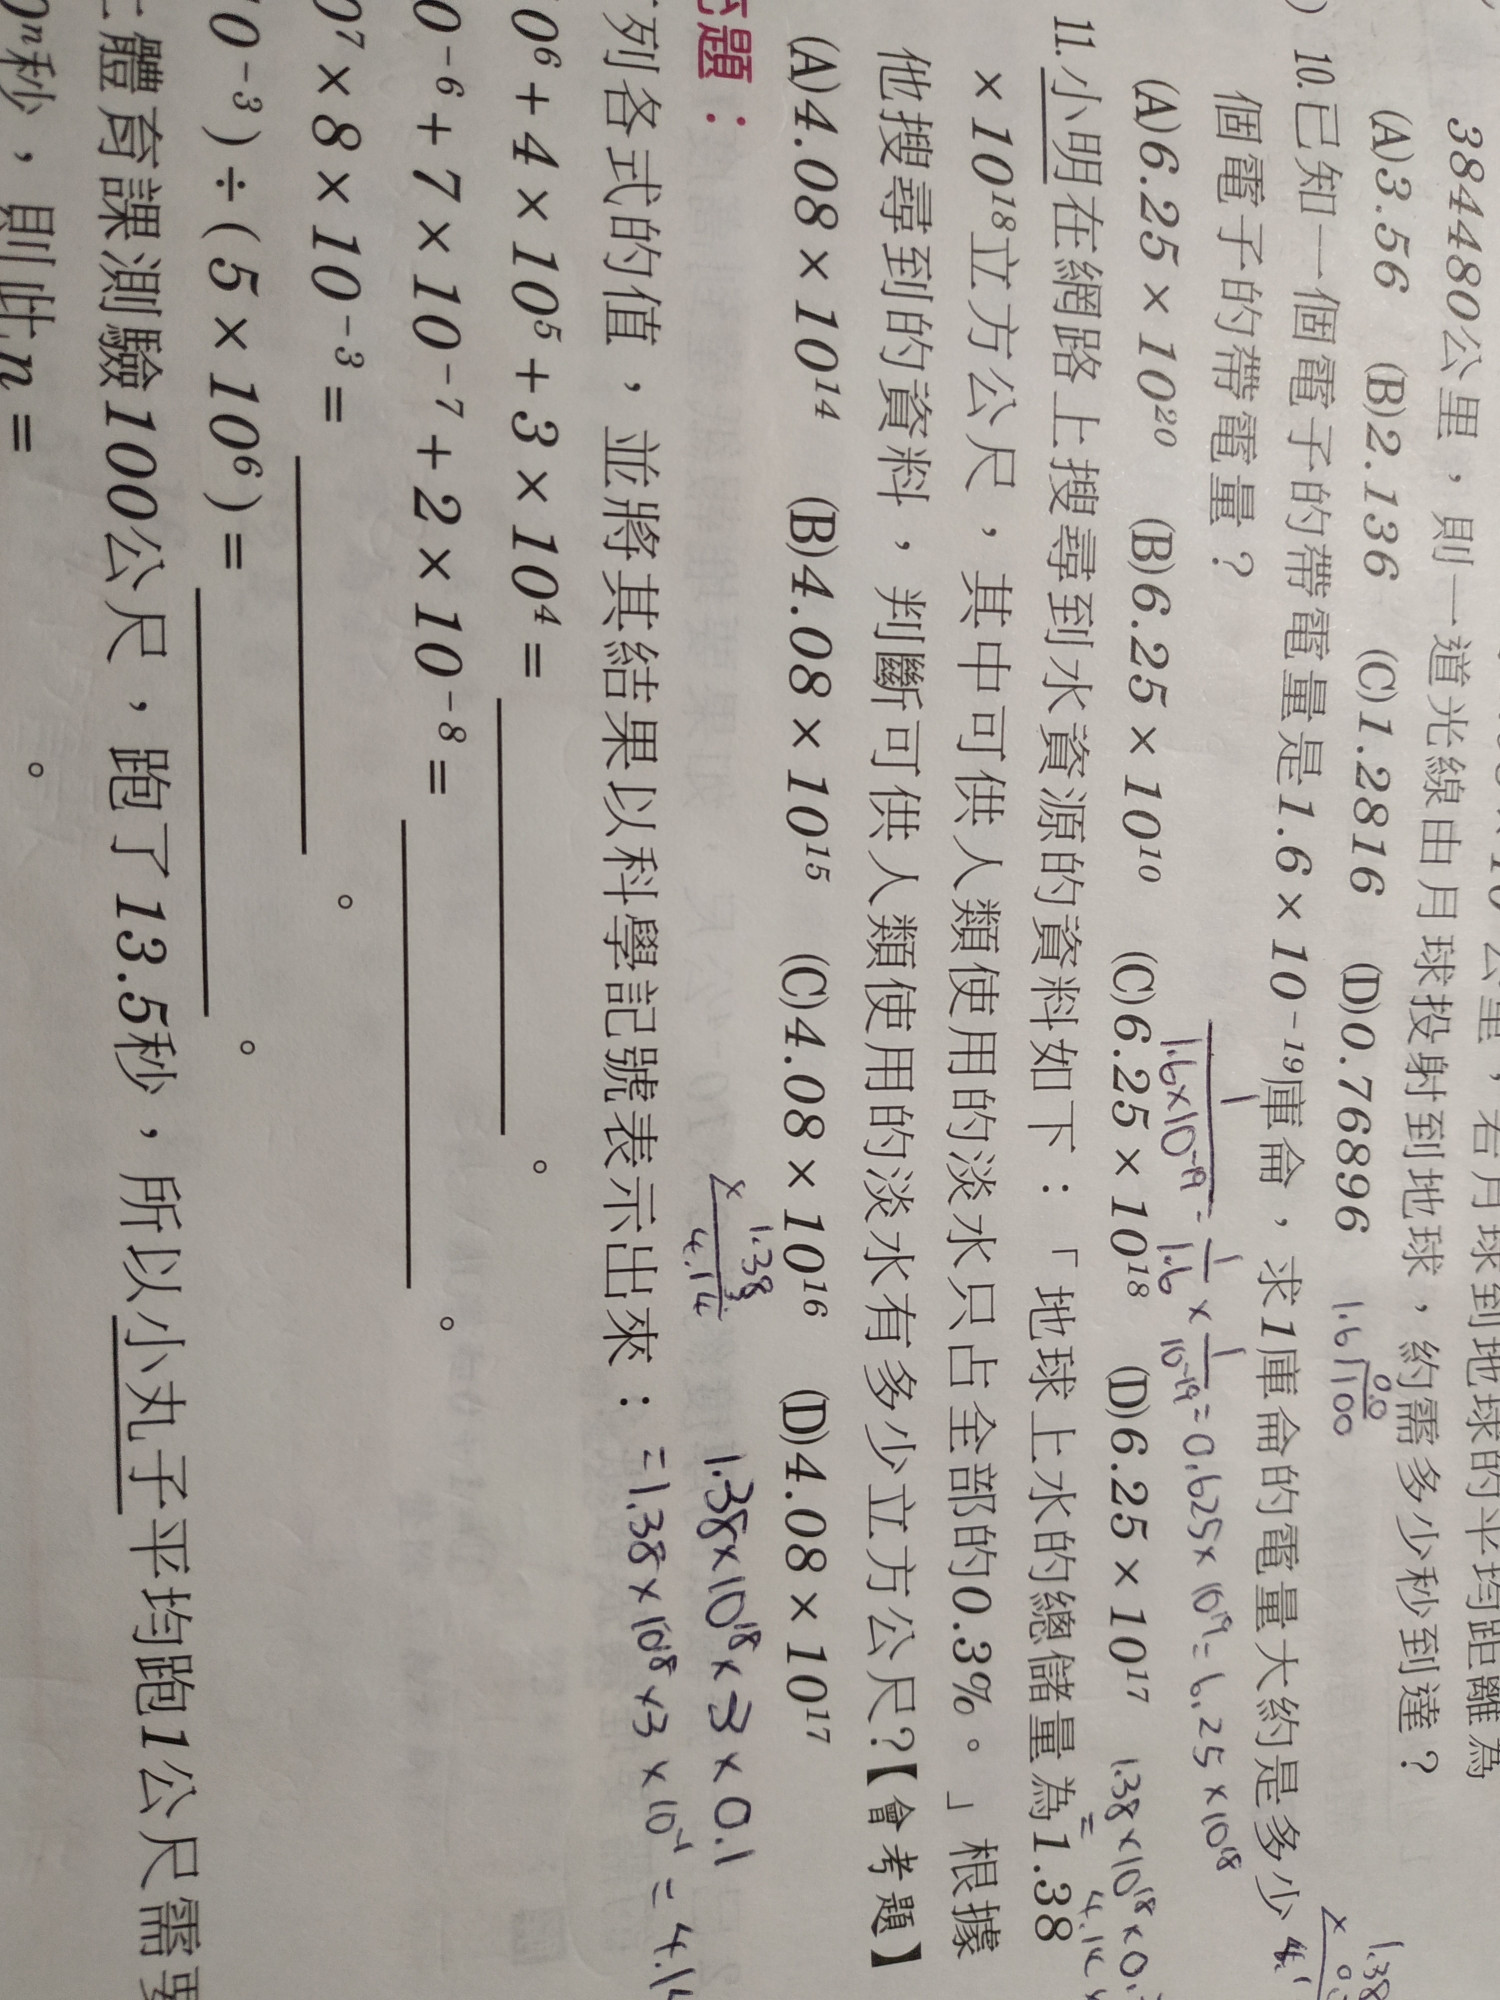 384480公里，則一道光線由月球投射到地球，約需多少秒到達？
(A)3.56 (B)2.136 (C)1.2816 (D)0.76896
1.6 100
0.0
) 10.已知一個電子的帶電量是1.6×10⁻¹⁹庫侖，求1庫侖的電量大約是多少
個電子的帶電量？
1/1.6×10⁻¹⁹ = 1/1.6 × 1/10⁻¹⁹ = 0.625×10¹⁹ = 6.25×10¹⁸
(A)6.25×10²⁰ (B)6.25×10¹⁰ (C)6.25×10¹⁸ (D)6.25×10¹⁷
11.小明在網路上搜尋到水資源的資料如下：「地球上水的總儲量為1.38
×10¹⁸立方公尺，其中可供人類使用的淡水只占全部的0.3%。」根據
他搜尋到的資料，判斷可供人類使用的淡水有多少立方公尺?【會考題】
(A)4.08×10¹⁴ (B)4.08×10¹⁵ (C)4.08×10¹⁶ (D)4.08×10¹⁷
1.38
×
4.14
1.38×10¹⁸×3×0.1
=1.38×10¹⁸×3×10⁻¹=4.14
題：
列各式的值，並將其結果以科學記號表示出來：
0⁶+4×10⁵+3×10⁴= 。
0⁻⁶+7×10⁻⁷+2×10⁻⁸= 。
0⁷×8×10⁻³= 。
0⁻³)÷(5×10⁶)= 。
體育課測驗100公尺，跑了13.5秒，所以小丸子平均跑1公尺需要
0ⁿ秒，則此n= 。